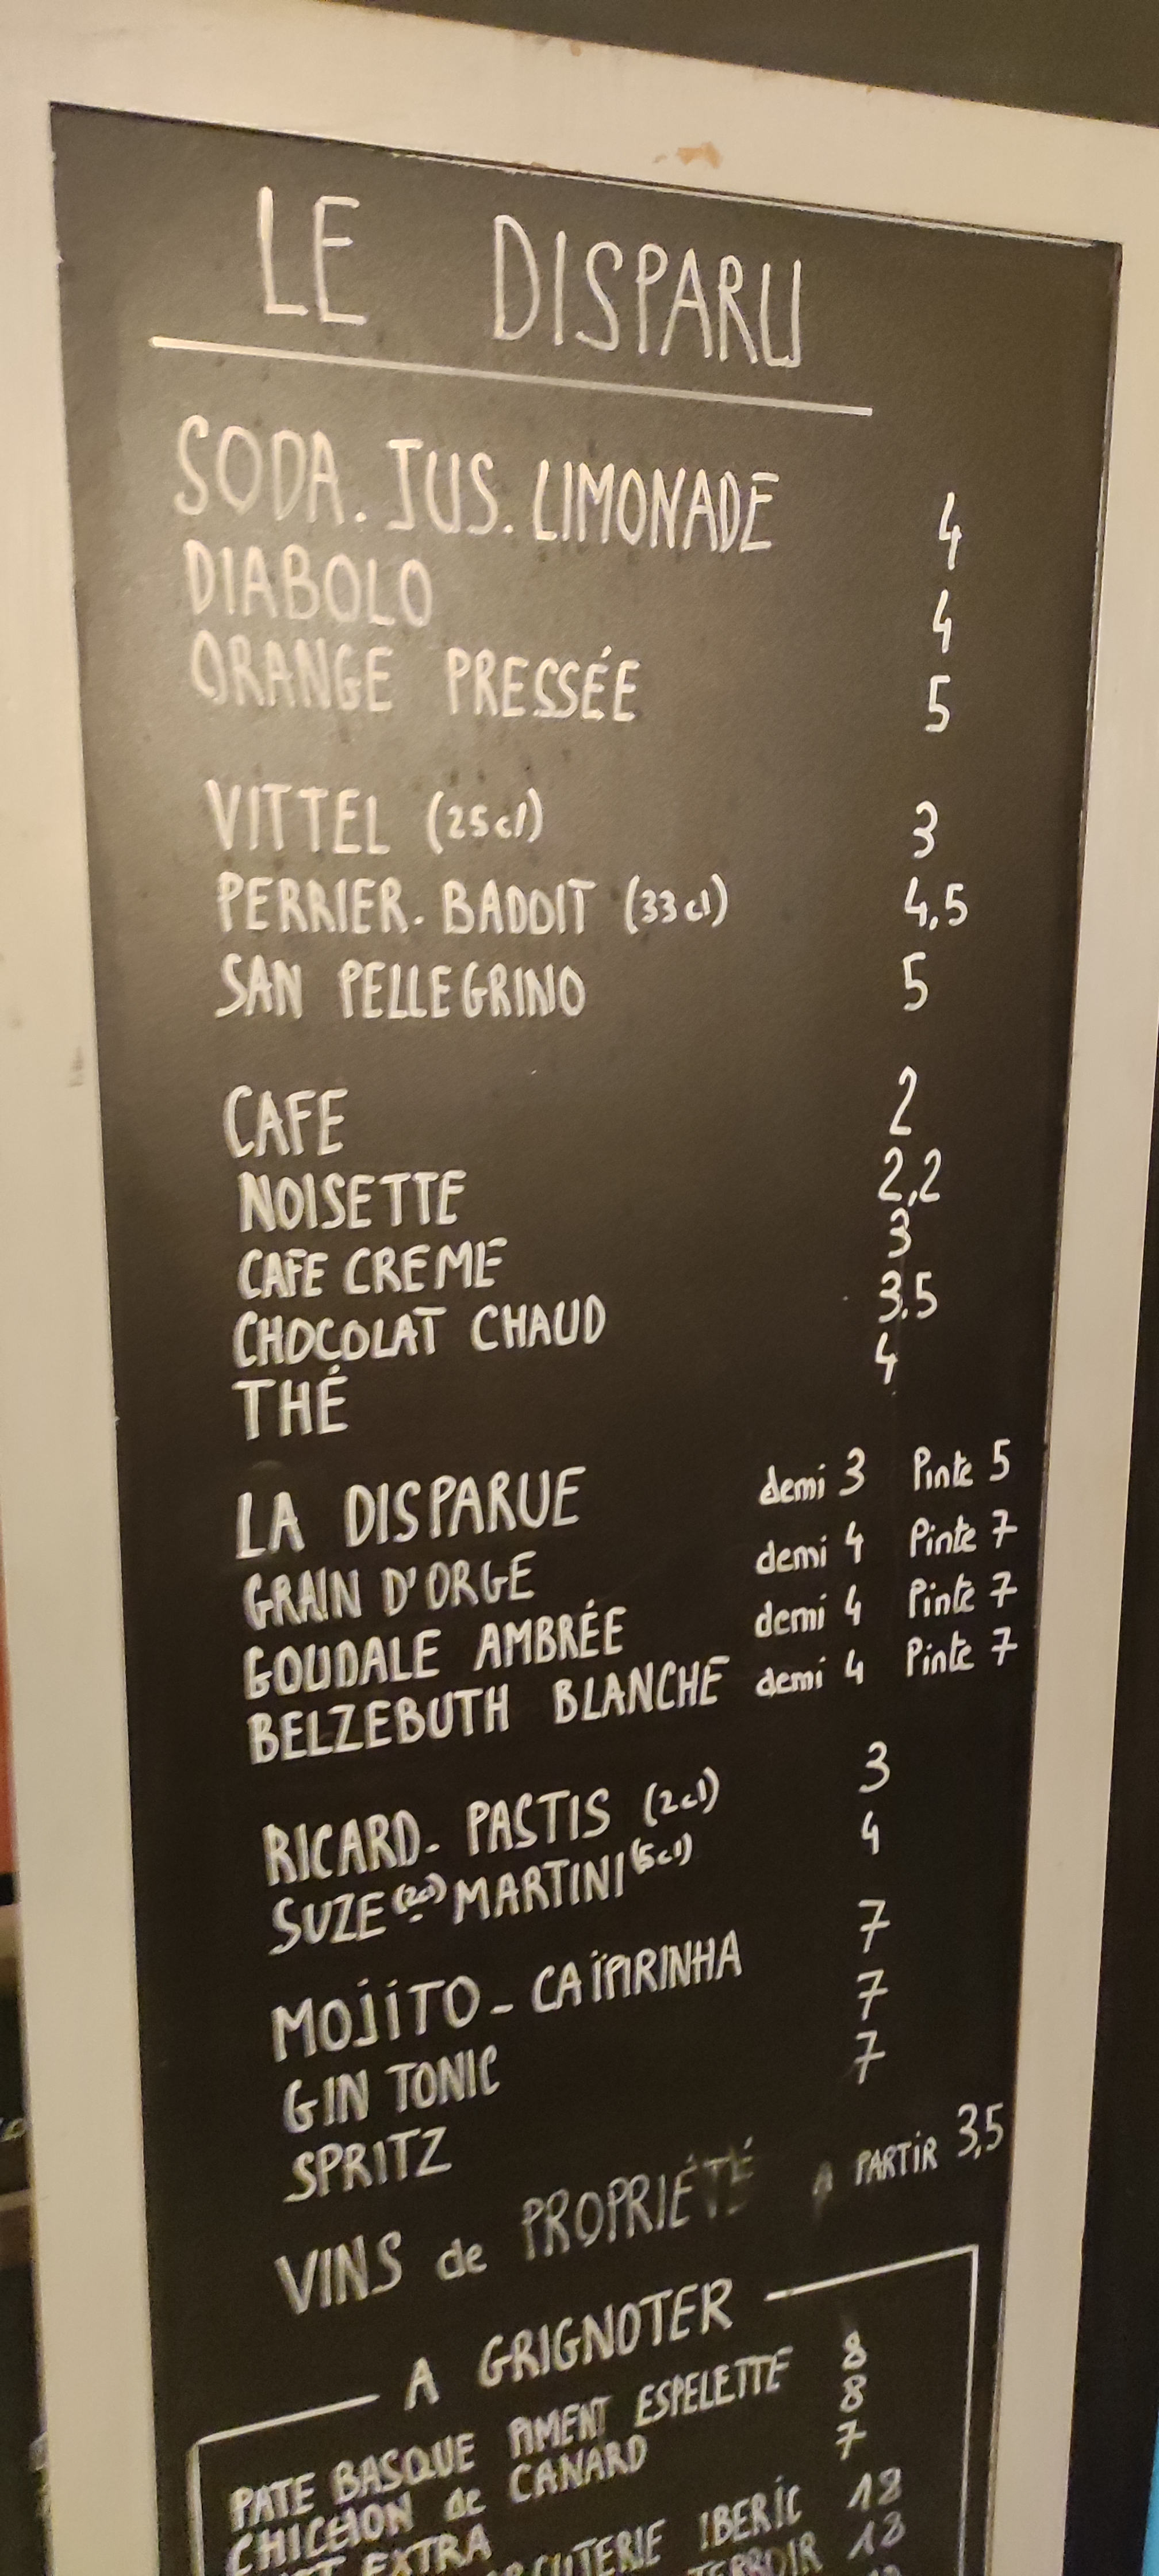 LE DISPARU
SODA. JUS. LIMONADE 4
DIABOLO 4
ORANGE PRESSÉE 5
VITTEL (25cl) 3
PERRIER. BADOIT (33cl) 4,5
SAN PELLEGRINO 5
CAFE 2
NOISETTE 2,2
CAFE CREME 3
CHOCOLAT CHAUD 3,5
THÉ 4
LA DISPARUE demi 3 Pinte 5
GRAIN D'ORGE demi 4 Pinte 7
GOUDALE AMBRÉE demi 4 Pinte 7
BELZEBUTH BLANCHE demi 4 Pinte 7
RICARD- PASTIS (2cl) 3
SUZE (2cl) MARTINI (5cl) 4
MOJITO - CAÏPIRINHA 7
GIN TONIC 7
SPRITZ 7
VINS de PROPRIÉTÉ A PARTIR 3,5
A GRIGNOTER
PATE BASQUE PIMENT ESPELETTE 8
CHICHON de CANARD 8
EXTRA 7
IBERIC 18
TERROIR 18